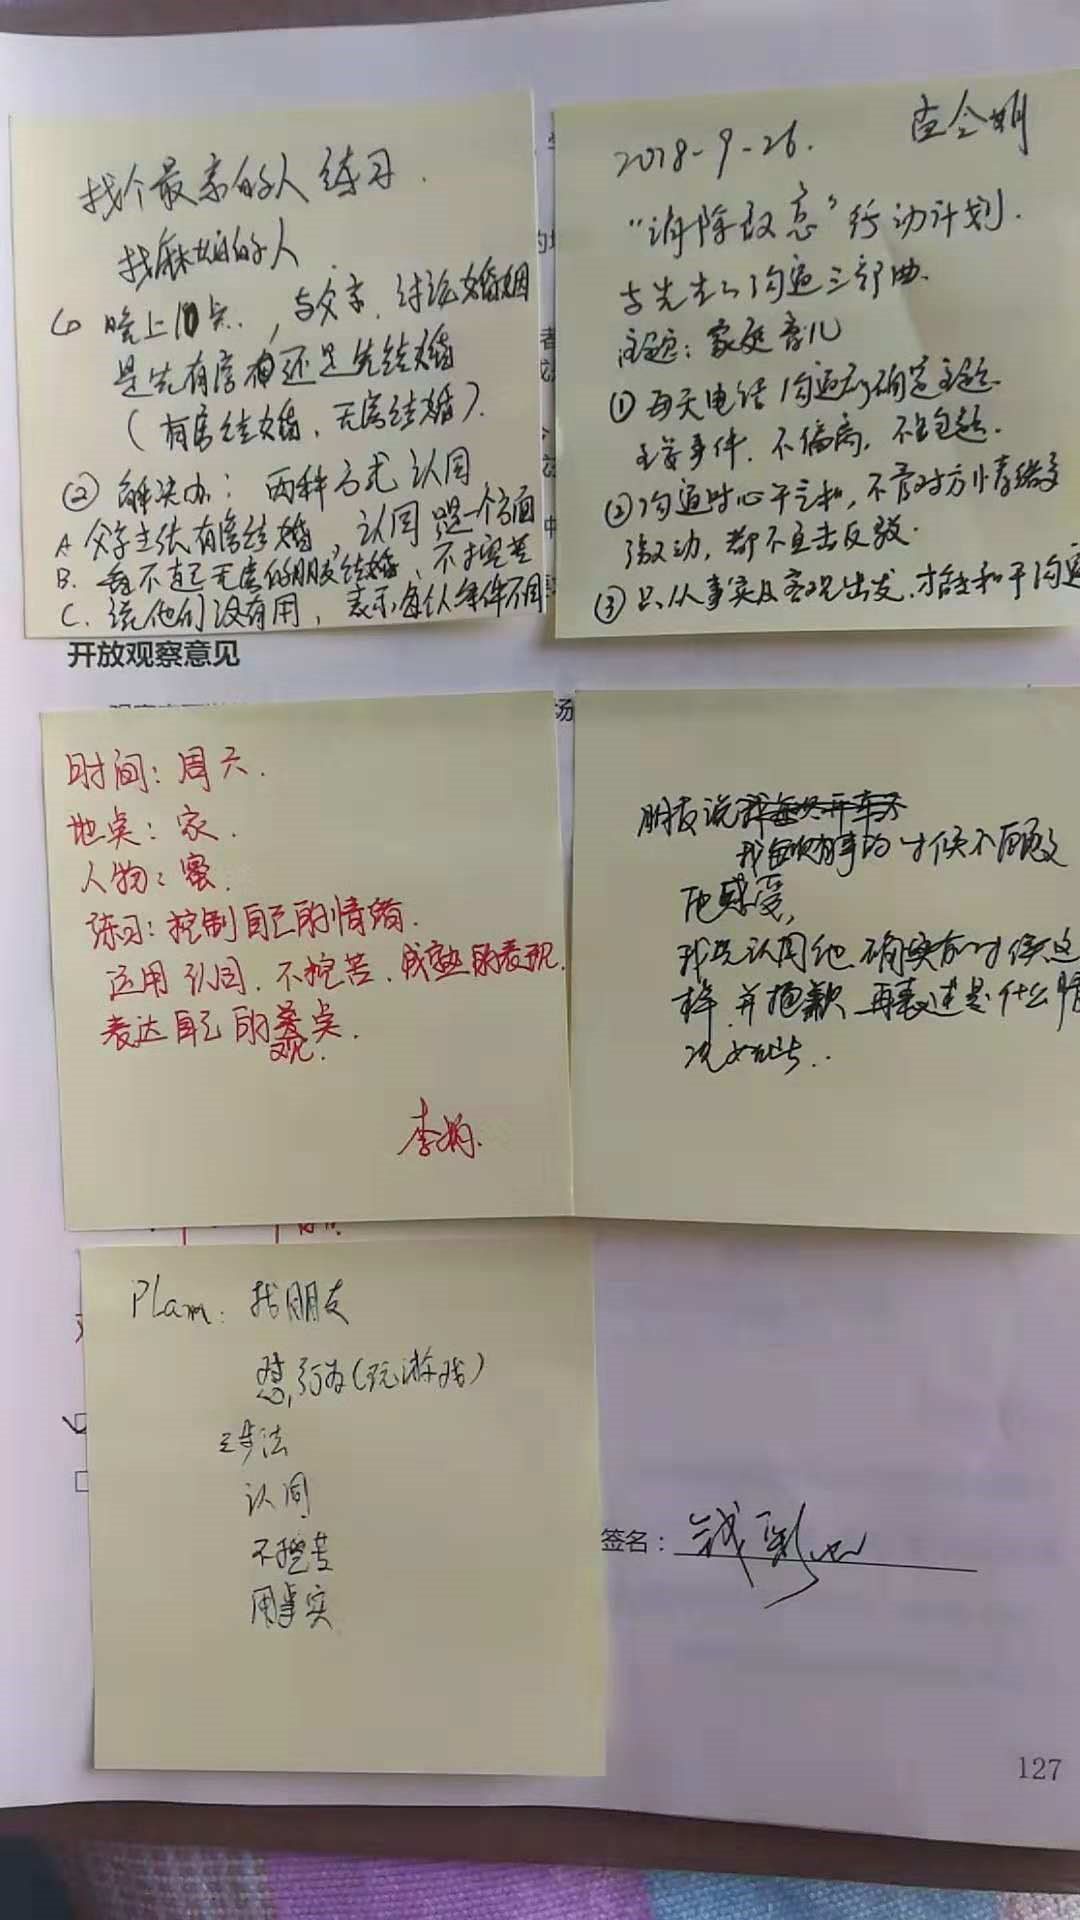 找个最亲的人练习.
找麻烦的人
晚上10点, 与父亲, 讨论婚姻
是先有房 还是先结婚
(有房结婚, 无房结婚).
② 解决办: 两种方式 认同
A 父亲主张有房结婚, 认同 是一个方面
B. 看不起无房的朋友结婚, 不挖苦
C. 说他们没有用, 表示每个人条件不同
2018-9-26.
"消除敌意"行动计划.
与先生的沟通三部曲.
主题: 家庭育儿
① 每天电话沟通前确定主题.
主要事件, 不偏离, 不跑题.
② 沟通时心平气和, 不管对方情绪多
激动, 都不直击反驳.
③ 只从事实及客观出发, 才能和平沟通
开放观察意见
场
时间: 周六.
地点: 家.
人物: 蜜.
练习: 控制自己的情绪.
运用 认同. 不挖苦. 成熟的表现.
表达自己的观点.
朋友说
我每次有事的时候不顾及
他感受,
我先认同他 确实有时候这
样, 并抱歉 再表述是什么情
况如此..
Plam: 找朋友
怼, 行为(玩游戏)
三步法
认同
不挖苦
用事实
签名:
127